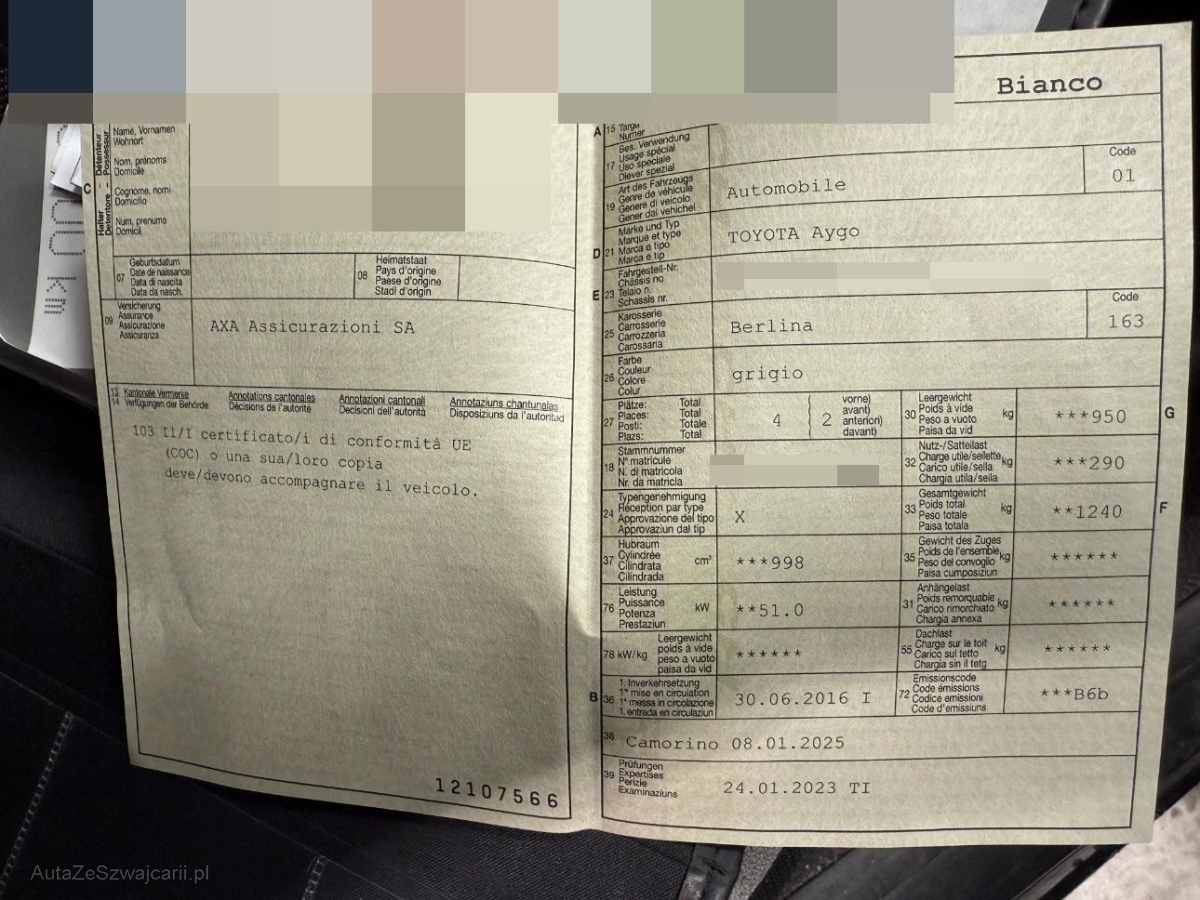 Bianco
Name, Vornamen
Wohnort
Nom, prénoms
Domicile
Cognome, nomi
Domicilio
Num, prenums
Domicil
C
Halter – Détenteur
Detentore – Possessur
07
Geburtsdatum
Date de naissance
Data di nascita
Data da nasch.
08
Heimatstaat
Pays d'origine
Paese d'origine
Stadi d'origin
09
Versicherung
Assurance
Assicurazione
Assicuranza
AXA Assicurazioni SA
13 Kantonale Vermerke
14 Verfügungen der Behörde
Annotations cantonales
Décisions de l'autorité
Annotazioni cantonali
Decisioni dell'autorità
Annotaziuns chantunalas
Disposiziuns da l'autoritad
103 Il/I certificato/i di conformità UE
(COC) o una sua/loro copia
deve/devono accompagnare il veicolo.
12107566
A
15 Targa
Numer
17
Bes. Verwendung
Usage spécial
Uso speciale
Diever spezial
19
Art des Fahrzeugs
Genre de véhicule
Genere di veicolo
Gener dal vehichel
Automobile
Code
01
D 21
Marke und Typ
Marque et type
Marca e tipo
Marca e tip
TOYOTA Aygo
E 23
Fahrgestell-Nr.
Châssis no
Telaio n.
Schassis nr.
25
Karosserie
Carrosserie
Carrozzeria
Carossaria
Berlina
Code
163
26
Farbe
Couleur
Colore
Colur
grigio
27
Plätze: Total
Places: Total
Posti: Totale
Plazs: Total
4
2
vorne)
avant)
anteriori)
davant)
30
Leergewicht
Poids à vide
Peso a vuoto
Paisa da vid
kg
***950
G
18
Stammnummer
N° matricule
N. di matricola
Nr. da matricla
32
Nutz-/Sattellast
Charge utile/sellette
Carico utile/sella
Chargia utila/sella
kg
***290
24
Typengenehmigung
Réception par type
Approvazione del tipo
Approvaziun dal tip
X
33
Gesamtgewicht
Poids total
Peso totale
Paisa totala
kg
**1240
F
37
Hubraum
Cylindrée
Cilindrata
Cilindrada
cm³
***998
35
Gewicht des Zuges
Poids de l'ensemble
Peso del convoglio
Paisa cumposiziun
kg
******
76
Leistung
Puissance
Potenza
Prestaziun
kW
**51.0
31
Anhängelast
Poids remorquable
Carico rimorchiato
Chargia annexa
kg
******
78 kW/kg
Leergewicht
poids à vide
peso a vuoto
paisa da vid
******
55
Dachlast
Charge sur le toit
Carico sul tetto
Chargia sin il tetg
kg
******
B 36
1. Inverkehrsetzung
1re mise en circulation
1a messa in circolazione
1. entrada en circulaziun
30.06.2016 I
72
Emissionscode
Code émissions
Codice emissioni
Code d'emissiuns
***B6b
38
Camorino 08.01.2025
39
Prüfungen
Expertises
Perizie
Examinaziuns
24.01.2023 TI
AutaZeSzwajcarii.pl